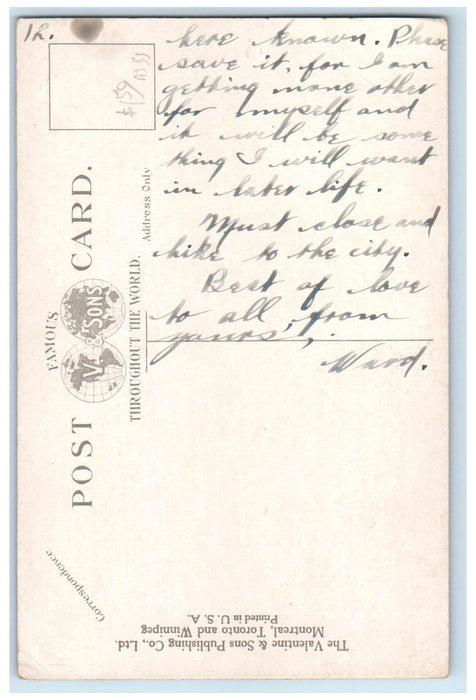 12.
here known. Please
save it, for I am
getting none other
for myself and
it will be some
thing I will want
in later life.
Must close and
hike to the city.
Best of love
to all, from
yours,
Ward.
POST CARD.
FAMOUS
THROUGHOUT THE WORLD.
V. & SONS
Address Only
Correspondence
The Valentine & Sons Publishing Co., Ltd.
Montreal, Toronto and Winnipeg
Printed in U. S. A.